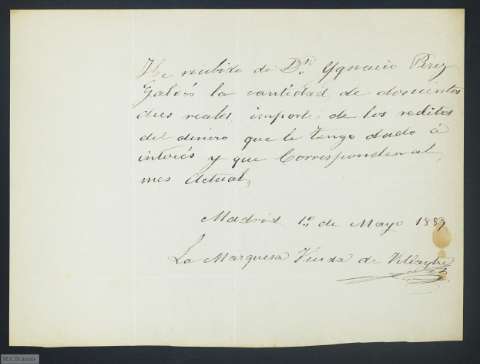 He recibido de Dn. Ygnacio Perez
Galdós la cantidad de doscientos
dies reales, import. de los reditos
del dinero que le tengo dado á
interés y que Corresponden al
mes Actual,
Madrid 1º de Mayo 1889
La Marquesa Viuda de